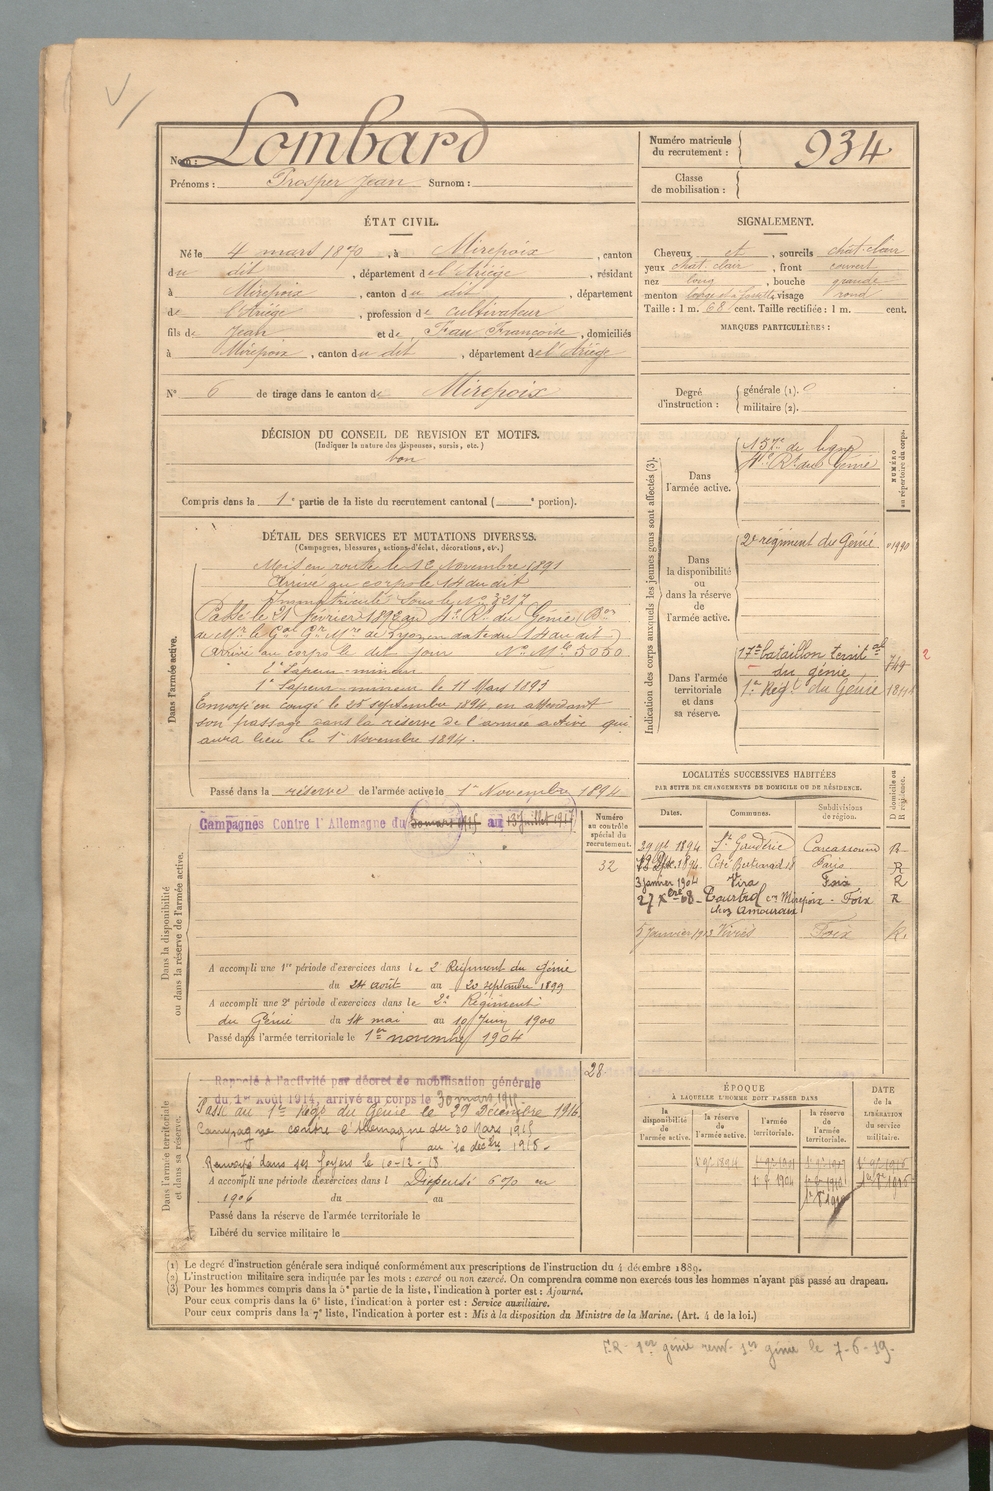 Nom : Lombard
Prénoms : Prosper Jean Surnom :
Numéro matricule du recrutement : 934
Classe de mobilisation :
ÉTAT CIVIL.
Né le 4 mars 1870, à Mirepoix, canton
du dit, département de l'Ariège, résidant
à Mirepoix, canton du dit, département
de l'Ariège, profession de cultivateur
fils de Jean et de Françoise, domiciliés
à Mirepoix, canton du dit, département de l'Ariège
N° 6 de tirage dans le canton de Mirepoix
SIGNALEMENT.
Cheveux et, sourcils chat. clair
yeux chat. clair, front couvert
nez long, bouche grande
menton visage rond
Taille : 1 m. 68 cent. Taille rectifiée : 1 m. cent.
MARQUES PARTICULIÈRES :
Degré d'instruction :
générale (1).
militaire (2).
DÉCISION DU CONSEIL DE REVISION ET MOTIFS.
(Indiquer la nature des dispenses, sursis, etc.)
bon
Compris dans la 1e partie de la liste du recrutement cantonal ( e portion).
DÉTAIL DES SERVICES ET MUTATIONS DIVERSES.
(Campagnes, blessures, actions d'éclat, décorations, etc.)
Dans l'armée active.
Mis en route le 12 Novembre 1891
Arrivé au corps le 14 du dit
Immatriculé sous le N° 3217
Passé le 21 février 1892 au 4e Rt du Génie (Don
de Mr le Gal Gr Mre de Lyon en date du 14 au dit)
Arrivé au corps le dit jour N° Mle 5050
2e Sapeur-mineur
1e Sapeur-mineur le 11 Mars 1893
Envoyé en congé le 25 septembre 1894, en attendant
son passage dans la réserve de l'armée active qui
aura lieu le 1e Novembre 1894.
Passé dans la réserve de l'armée active le 1e Novembre 1894
Indication des corps auxquels les jeunes gens sont affectés (3).
NUMÉRO au répertoire du corps.
Dans l'armée active.
157e de ligne
4e Rt du Génie
Dans la disponibilité ou dans la réserve de l'armée active.
2e régiment du Génie 01990
Dans l'armée territoriale et dans sa réserve.
17e bataillon territ al
du génie 749
1er Régt du Génie
2
Dans la disponibilité ou dans la réserve de l'armée active.
Campagnes Contre l'Allemagne du 30 mars 1915 au 13 Juillet 1917
Numéro au contrôle spécial du recrutement.
32
A accompli une 1re période d'exercices dans le 2 Régiment du Génie
du 24 août au 20 septembre 1899
A accompli une 2e période d'exercices dans le 2e Régiment
du Génie du 14 mai au 10 Juin 1900
Passé dans l'armée territoriale le 1er novembre 1904
LOCALITÉS SUCCESSIVES HABITÉES
PAR SUITE DE CHANGEMENTS DE DOMICILE OU DE RÉSIDENCE.
Dates. Communes. Subdivisions de région. D domicile ou R résidence.
29 1894 St Gaudéric Carcassonne R
1894 Cité Bertrand Paris R
3 janvier 1904 Vira Foix R
27 Xbre 08 - Tourtrol Mirepoix - Foix R
chez Amouroux
5 Janvier 1913 Viviès Foix R.
Dans l'armée territoriale et dans sa réserve.
28
Rappelé à l'activité par décret de mobilisation générale
du 1er Août 1914, arrivé au corps le 30 mars 1915.
Passé au 1er Régt du Génie le 29 Décembre 1916
Campagne contre l'Allemagne du 30 Mars 1915
au 10 décbre 1918.
Renvoyé dans ses foyers le 10-12-18
A accompli une période d'exercices dans l Dispensé en
1906 du au
Passé dans la réserve de l'armée territoriale le
Libéré du service militaire le
ÉPOQUE
À LAQUELLE L'HOMME DOIT PASSER DANS
la disponibilité de l'armée active. la réserve de l'armée active. l'armée territoriale. la réserve de l'armée territoriale.
DATE de la LIBÉRATION du service militaire.
(1) Le degré d'instruction générale sera indiqué conformément aux prescriptions de l'instruction du 4 décembre 1889.
(2) L'instruction militaire sera indiquée par les mots : exercé ou non exercé. On comprendra comme non exercés tous les hommes n'ayant pas passé au drapeau.
(3) Pour les hommes compris dans la 5e partie de la liste, l'indication à porter est : Ajourné.
Pour ceux compris dans la 6e liste, l'indication à porter est : Service auxiliaire.
Pour ceux compris dans la 7e liste, l'indication à porter est : Mis à la disposition du Ministre de la Marine. (Art. 4 de la loi.)
F.R. 1er génie renv. 1er génie le 7-6-19.